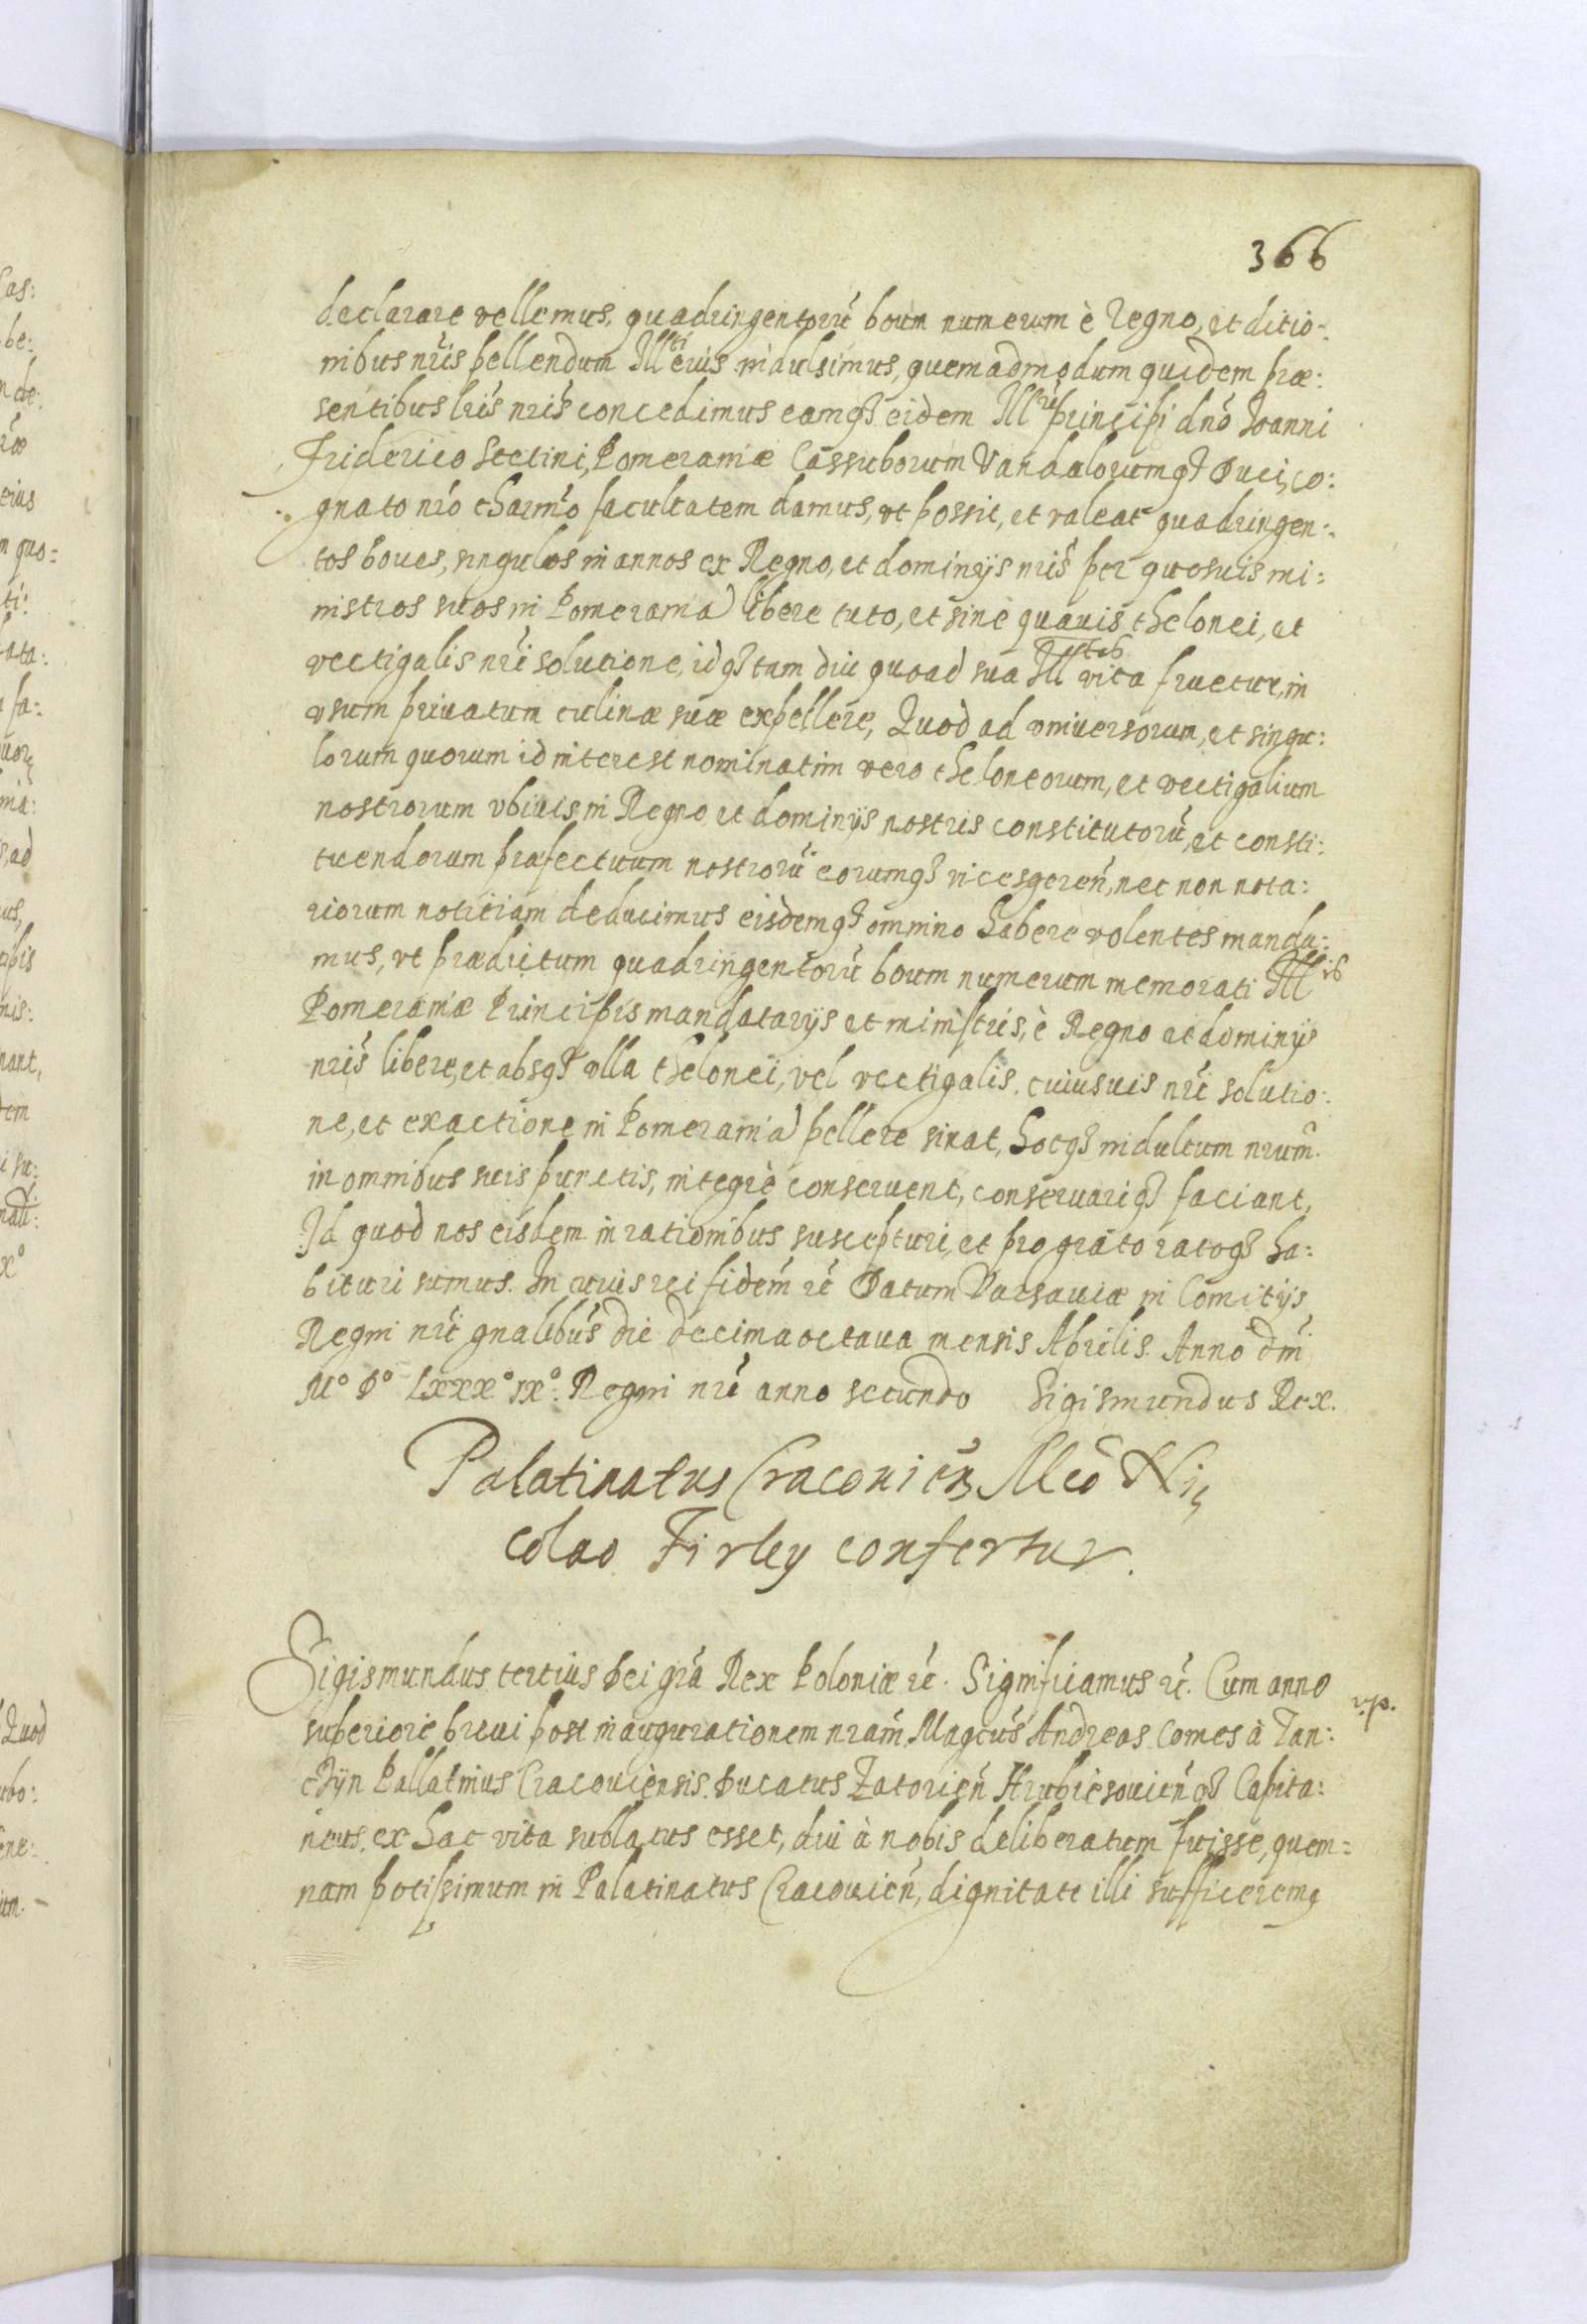 366
declarare vellemus, quadringentorũ boum numerum è Regno, et ditio:
nibus nris̃ pellendum Illti eius indulsimus, quemadmodum quidem præ:
sentibus lris̃ nris̃ concedimus eamq̃ eidem Illri principi dno̅ Joanni
Friderico Stetini, Pomeraniæ Cassuborum Vandalorumq̃ Duci, co:
gnato nro̅ charmo̅ facultatem damus, vt possit, et valeat quadringen:
tos boues, singulos in annos ex Regno, et dominijs nris̃ per quosuis mi:
nistros suos in Pomerania) libere tuto, et sine quauis thelonei, et
vectigalis nri̅ solutione, idq̃ tam diu quoad sua Illtas vita fruetur, in
vsum priuatum culinæ suæ expellere, Quod ad vniversorum, et singu:
lorum quorum id interest nominatim vero theloneorum, et vectigalium
nostrorum vbiuis in Regno et dominijs nostris constitutorũ, et consti:
tuendorum præfectuum nostrorũ eorumq̃ vicesgeren̅, nec non nota:
riorum notitiam deducimus eisdemq̃ omnino habere volentes manda:
mus, vt prædictum quadringentorũ boum numerum memorati Illis
Pomeraniæ Principis mandatarijs et ministris, è Regno et dominijs
nris̃ libere, et absq̃ vlla thelonei, vel vectigalis cuiusuis nri̅ solutio:
ne, et exactione in Pomerania) pellere sinat, hocq̃ indultum nrum̃.
in omnibus suis punctis, integrè conseruent, conseruariq̃ faciant,
Id quod nos eisdem in rationibus suscepturi, et pro grato ratoq̃ ha:
bituri sumus. In cuius rei fidem̃ rc̃ Datum Varsauiæ in Comitijs
Regni nri̅ gnalibus̃ die decima octaua mensis Aprilis. Anno dm̃
Mº Dº Lxxxº ixº: Regni nri̅ anno secundo Sigismundus Rex.
Palatinatus Cracouien̅ Mco̅ Ni,
colao Firley confertur.
Sigismundus tertius Dei gra̅ Rex Poloniæ rc̃. Significamus rc̃. Cum anno
superiore breui post inaugurationem nram̃ Magcus̃ Andreas Comes à Tan:
czyn Pallatinus Cracouiensis. Ducatus Zatorien̅ Hrubiesouien̅q̃ Capita:
neus, ex hac vita sublatus esset, diu à nobis deliberatum fuisse, quem:
nam potissimum in Palatinatus Cracouien̅, dignitate illi sufficeremq